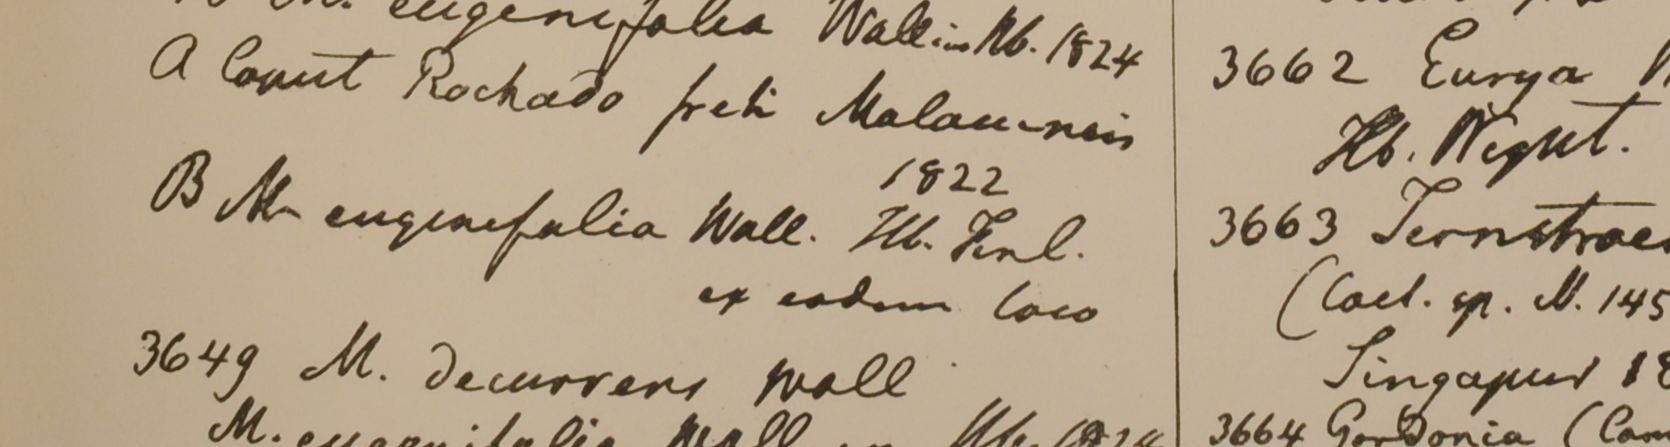 M. eugenifolia Wall in Hb. 1824
A Caput Rachado freti Malaccensis
1822
B M. eugenifolia Wall. Hb. Finl.
ex eodem loco
3649 M. decurrens Wall
M. eugenifolia Wall in Hb. 1824
3662 Eurya
Hb. Wight.
3663 Ternstroe
(Coel. sp. N. 145
Singapur 18
3664 Gordonia (Cam